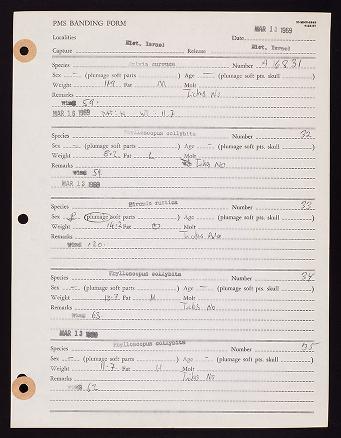 PMS BANDING FORM
Localities
Date MAR 12 1969
Capture Hist. Israel Release Hist. Israel
Species Sylvia curruca Number A 6831
Sex — (plumage soft parts ) Age — (plumage soft pts. skull )
Weight 11.9 Fat M Molt
Remarks Ticks No
wing 59.
MAR 16 1969 WT. 11.7
Species Phylloscopus collybita Number 32
Sex — (plumage soft parts ) Age — (plumage soft pts. skull )
Weight 8.2 Fat L Molt
Remarks Ticks No
wing 59
MAR 12 1969
Species Hirundo rustica Number 33
Sex (plumage soft parts ) Age (plumage soft pts. skull )
Weight 14.2 Fat 0 Molt
Remarks Ticks No
wing 120
Species Phylloscopus collybita Number 34
Sex — (plumage soft parts ) Age — (plumage soft pts. skull )
Weight Fat M Molt
Remarks Ticks No
wing 63
MAR 12 1969
Species Phylloscopus collybita Number 35
Sex — (plumage soft parts ) Age — (plumage soft pts. skull )
Weight 11.7 Fat Molt
Remarks Ticks No
wing 62